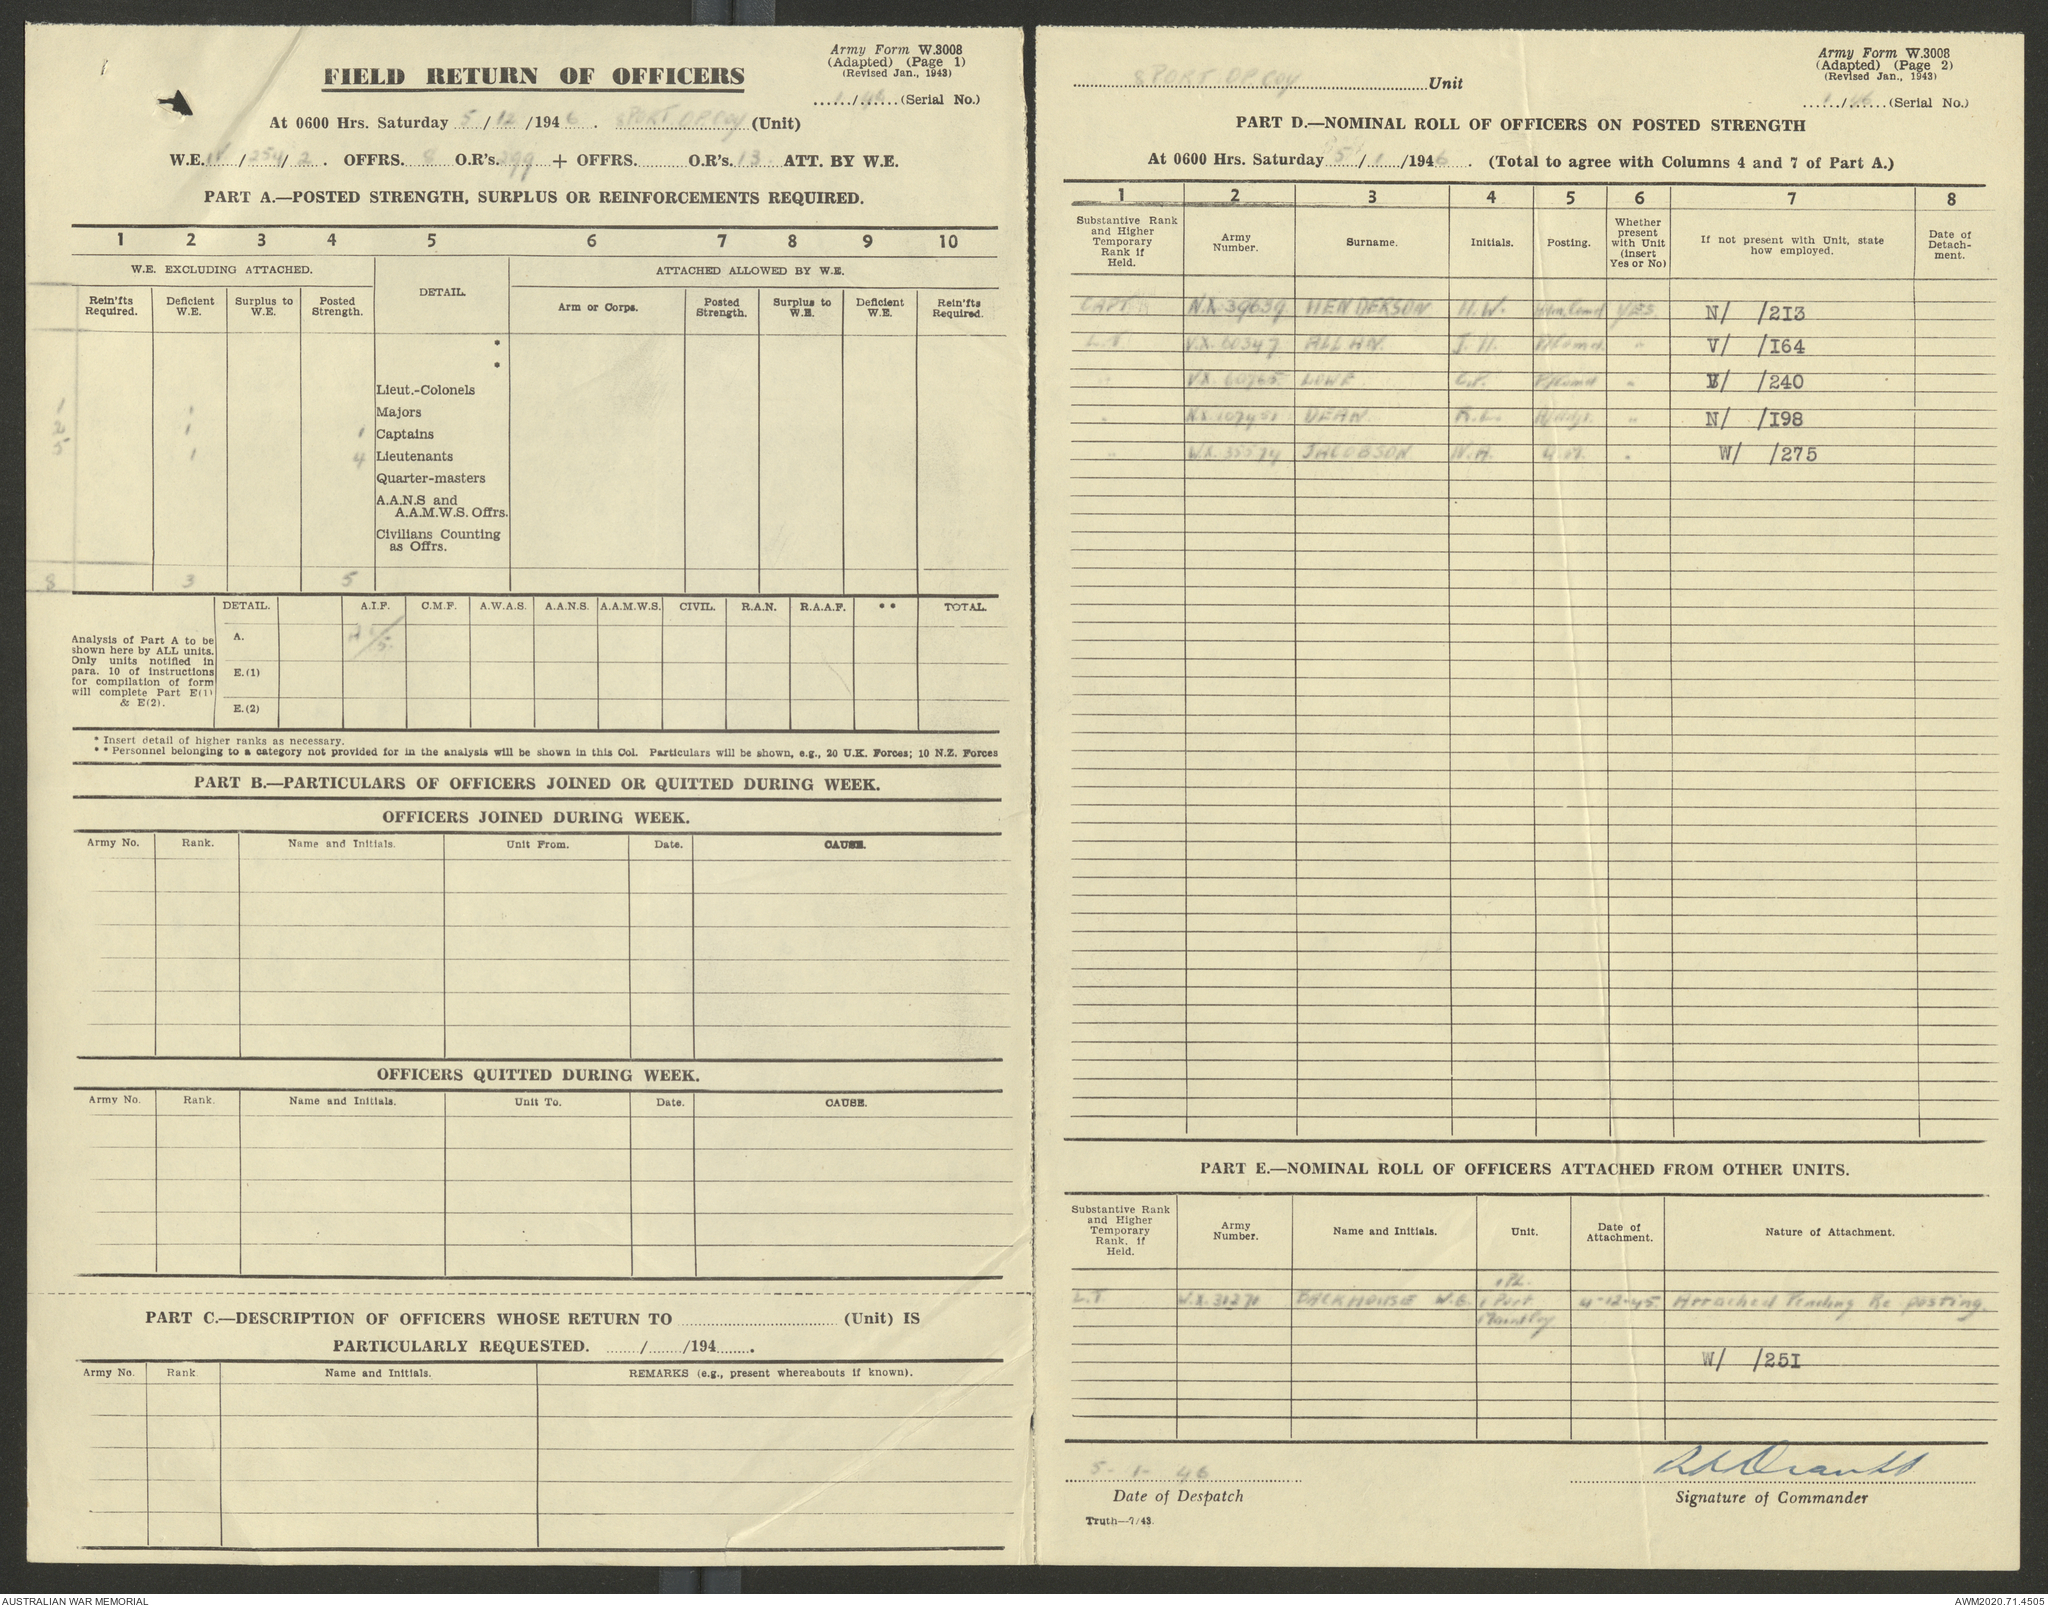 Army Form W.3008
(Adapted) (Page 1)
(Revised Jan., 1943)
FIELD RETURN OF OFFICERS
1/46 (Serial No.)
At 0600 Hrs. Saturday 5/12/1946. 8 PORT OP COY (Unit)
W.E. /254/2. OFFRS. 8 O.R's. 299 + OFFRS. O.R's. 13 ATT. BY W.E.
PART A.—POSTED STRENGTH, SURPLUS OR REINFORCEMENTS REQUIRED.
1 2 3 4 5 6 7 8 9 10
W.E. EXCLUDING ATTACHED. DETAIL. ATTACHED ALLOWED BY W.E.
Rein'fts Required. Deficient W.E. Surplus to W.E. Posted Strength. Arm or Corps. Posted Strength. Surplus to W.E. Deficient W.E. Rein'fts Required.
*
*
Lieut.-Colonels
1 1 Majors
2 1 1 Captains
5 1 4 Lieutenants
Quarter-masters
A.A.N.S and
A.A.M.W.S. Offrs.
Civilians Counting
as Offrs.
8 3 5
DETAIL. A.I.F. C.M.F. A.W.A.S. A.A.N.S. A.A.M.W.S. CIVIL. R.A.N. R.A.A.F. ** TOTAL.
Analysis of Part A to be
shown here by ALL units.
Only units notified in
para. 10 of instructions
for compilation of form
will complete Part E(1)
& E(2).
A. 5
E.(1)
E.(2)
* Insert detail of higher ranks as necessary.
** Personnel belonging to a category not provided for in the analysis will be shown in this Col. Particulars will be shown, e.g., 20 U.K. Forces; 10 N.Z. Forces
PART B.—PARTICULARS OF OFFICERS JOINED OR QUITTED DURING WEEK.
OFFICERS JOINED DURING WEEK.
Army No. Rank. Name and Initials. Unit From. Date. CAUSE.
OFFICERS QUITTED DURING WEEK.
Army No. Rank. Name and Initials. Unit To. Date. CAUSE.
PART C.—DESCRIPTION OF OFFICERS WHOSE RETURN TO (Unit) IS
PARTICULARLY REQUESTED. / /194 .
Army No. Rank Name and Initials. REMARKS (e.g., present whereabouts if known).
Army Form W.3008
(Adapted) (Page 2)
(Revised Jan., 1943)
8 PORT OP COY Unit
1/46 (Serial No.)
PART D.—NOMINAL ROLL OF OFFICERS ON POSTED STRENGTH
At 0600 Hrs. Saturday 5/1/1946. (Total to agree with Columns 4 and 7 of Part A.)
1 2 3 4 5 6 7 8
Substantive Rank and Higher Temporary Rank if Held. Army Number. Surname. Initials. Posting. Whether present with Unit (insert Yes or No) If not present with Unit, state how employed. Date of Detach-ment.
CAPT NX.39639 HENDERSON H.W. YES. N/ /213
LT VX.60347 ALLAN J.H. Pl Comd " V/ /164
" VX.60765 LOWE C.P. Pl Comd " V/ /240
" NX.107451 DEAN R.L. " N/ /198
" WX.35574 JACOBSON W.A. Q.M. " W/ /275
PART E.—NOMINAL ROLL OF OFFICERS ATTACHED FROM OTHER UNITS.
Substantive Rank and Higher Temporary Rank, if Held. Army Number. Name and Initials. Unit. Date of Attachment. Nature of Attachment.
LT WX.31271 BACKHOUSE W.G. 1 PL. 1 Port Maint Coy 4-12-45 Attached Pending Re posting.
W/ /251
5-1-46
Date of Despatch
Signature of Commander
Truth—7/43.
AUSTRALIAN WAR MEMORIAL
AWM2020.71.4505